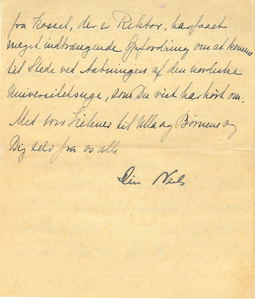 fra Kossel, der er Rektor, har faaet
meget indtrængende Opfordring om at komme
til Stede ved Aabningen af den nordiske
Universitetsuge, som Du vist har hørt om.
Med vore Hilsner til Ulla og Børnene og
Dig selv fra os alle
Din Niels